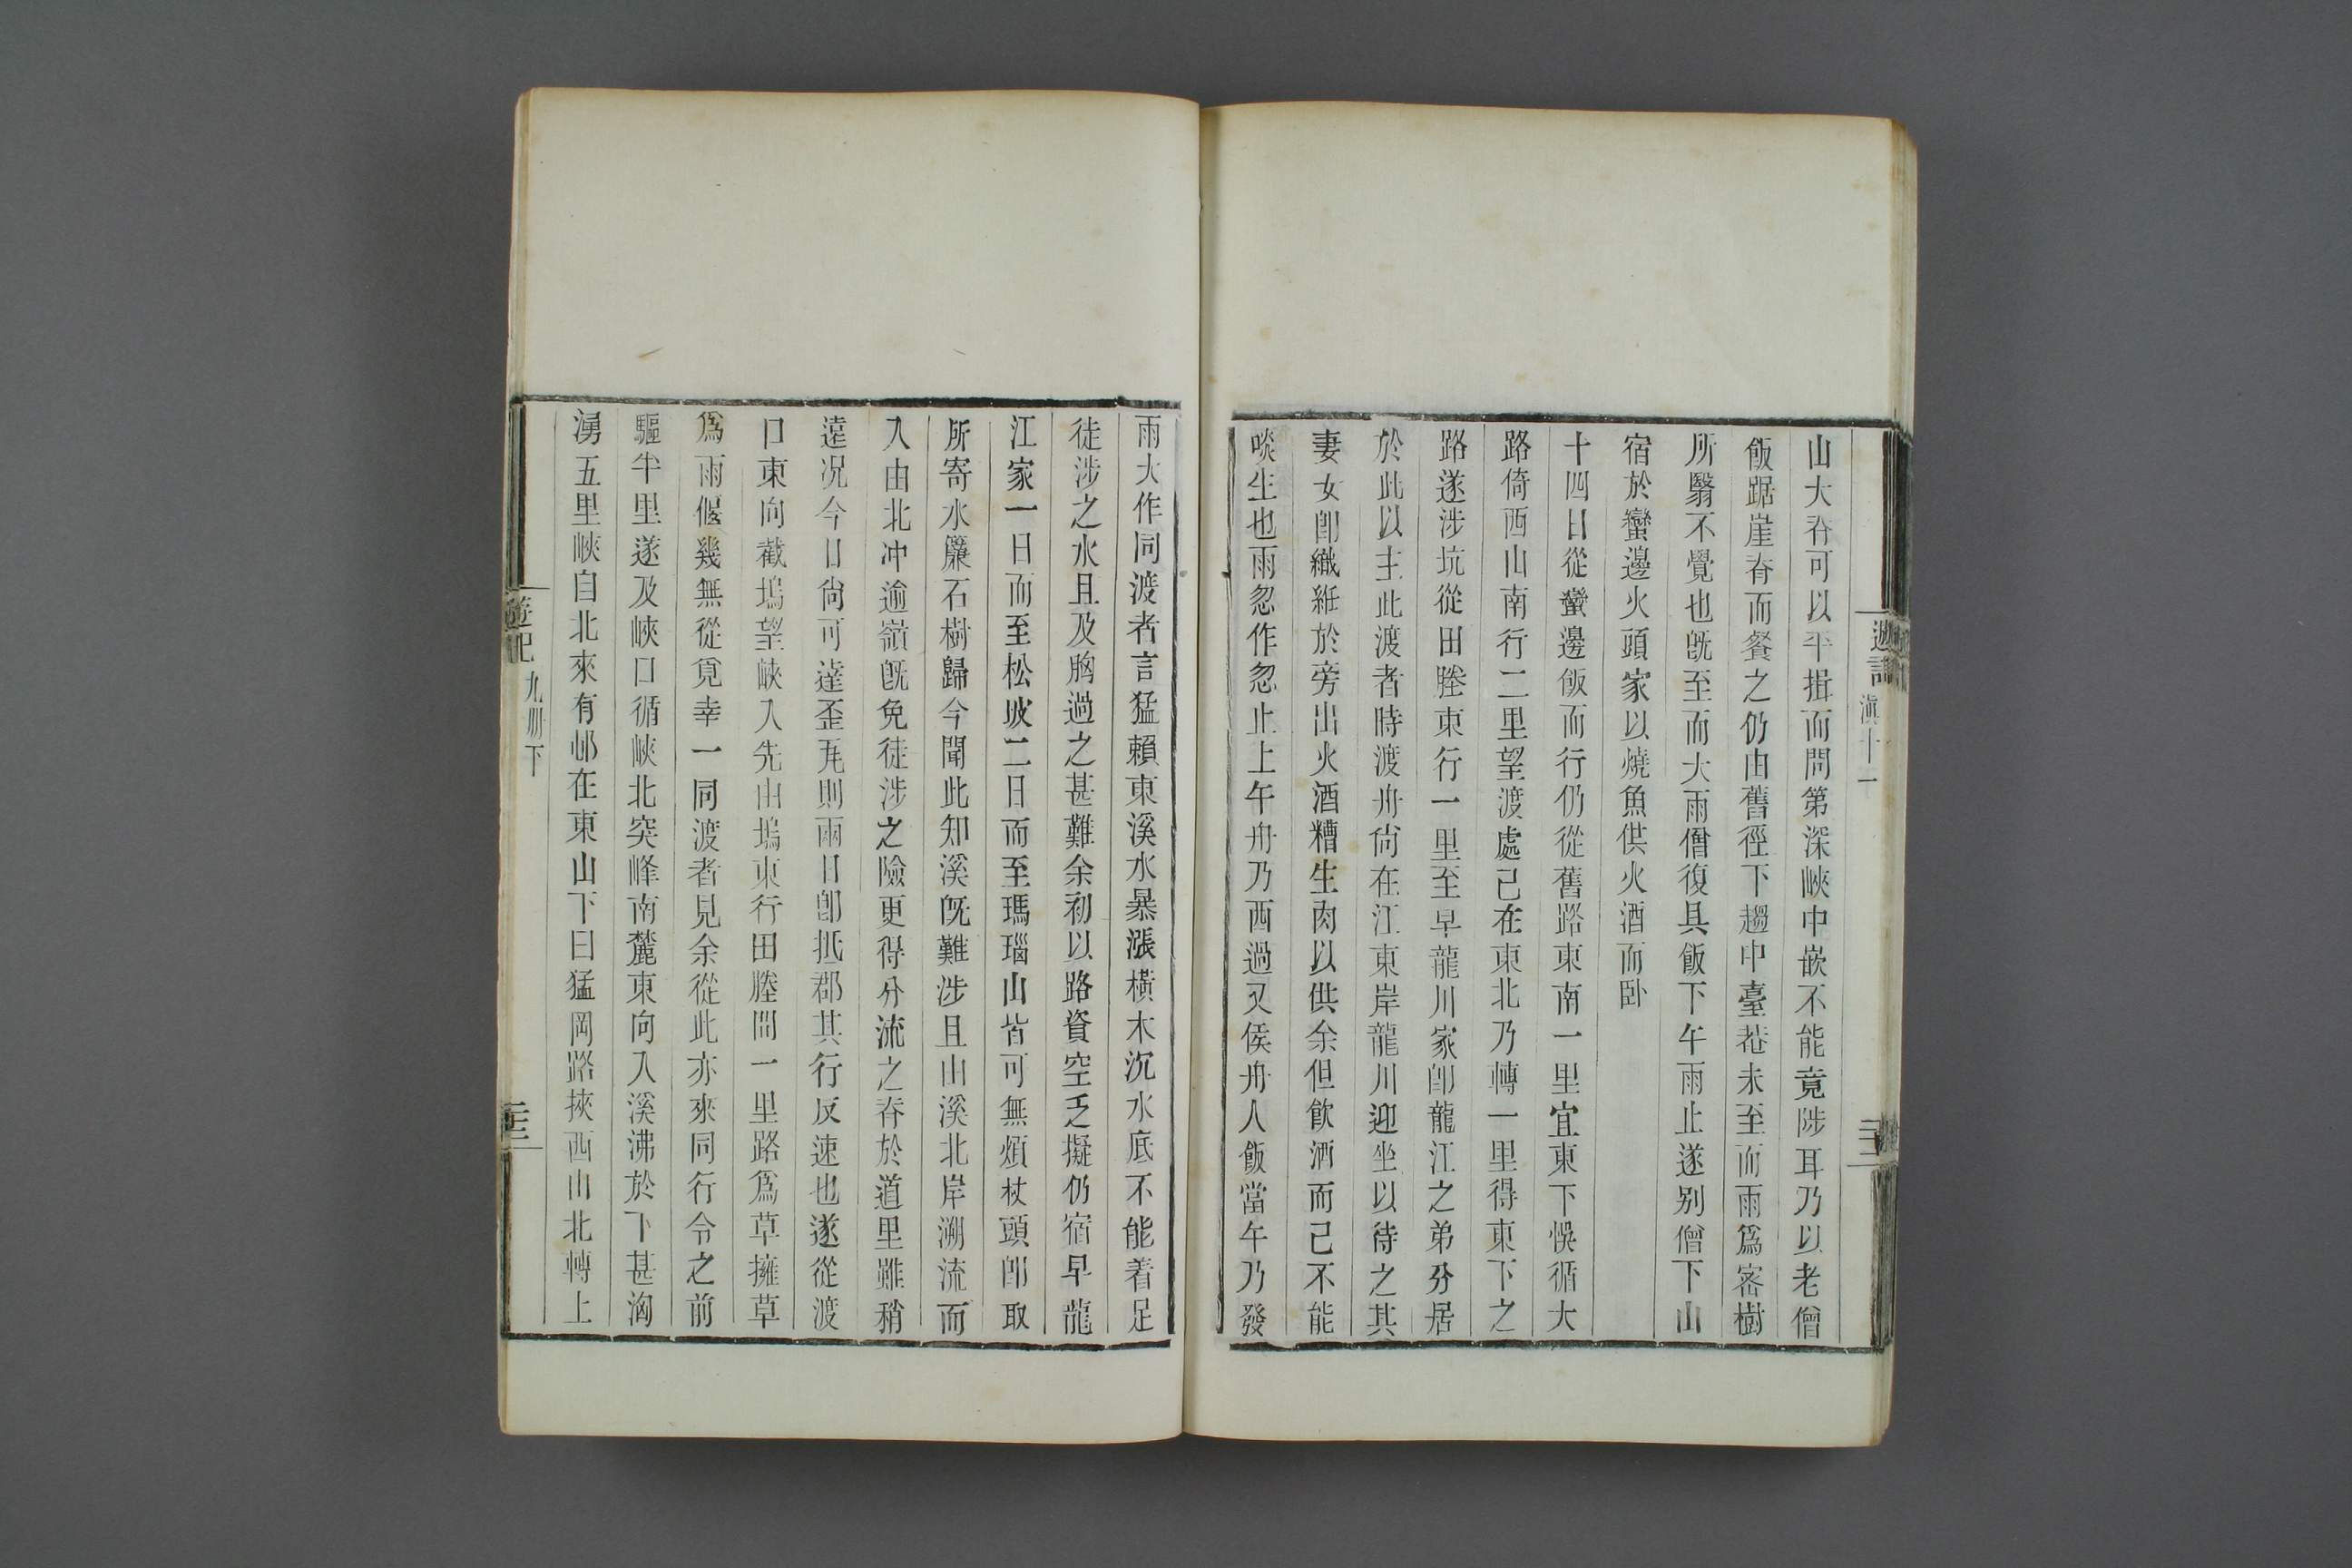 遊記
滇十一
山大脊可以平揖而問第深峽中嵌不能竟陟耳乃以老僧
飯踞崖脊而餐之仍由舊徑下趨中臺菴未至而雨爲密樹
所翳不覺也旣至而大雨僧復具飯下午雨止遂别僧下山
宿於蠻邊火頭家以燒魚供火酒而卧
十四日從蠻邊飯而行仍從舊路東南一里宜東下悞循大
路倚西山南行二里望渡處已在東北乃轉一里得東下之
路遂涉坑從田塍東行一里至早龍川家卽龍江之弟分居
於此以主此渡者時渡舟尙在江東岸龍川迎坐以待之其
妻女卽織絍於旁出火酒糟生肉以供余但飮酒而已不能
啖生也雨忽作忽止上午舟乃西過又候舟人飯當午乃發
雨大作同渡者言猛賴東溪水暴漲橫木沉水底不能着足
徒涉之水且及胸過之甚難余初以路資空乏擬仍宿早龍
江家一日而至松坡二日而至瑪瑙山皆可無煩杖頭卽取
所寄水簾石樹歸今聞此知溪旣難涉且山溪北岸溯流而
入由北冲逾嶺旣免徒涉之險更得分流之脊於道里雖稍
遠况今日尙可達歪瓦則兩日卽抵郡其行反速也遂從渡
口東向截塢望峽入先由塢東行田塍間一里路爲草擁草
爲雨偃幾無從覓幸一同渡者見余從此亦來同行令之前
驅半里遂及峽口循峽北突峰南麓東向入溪沸於下甚洶
湧五里峽自北來有邨在東山下曰猛岡路挾西山北轉上
遊記
九册下